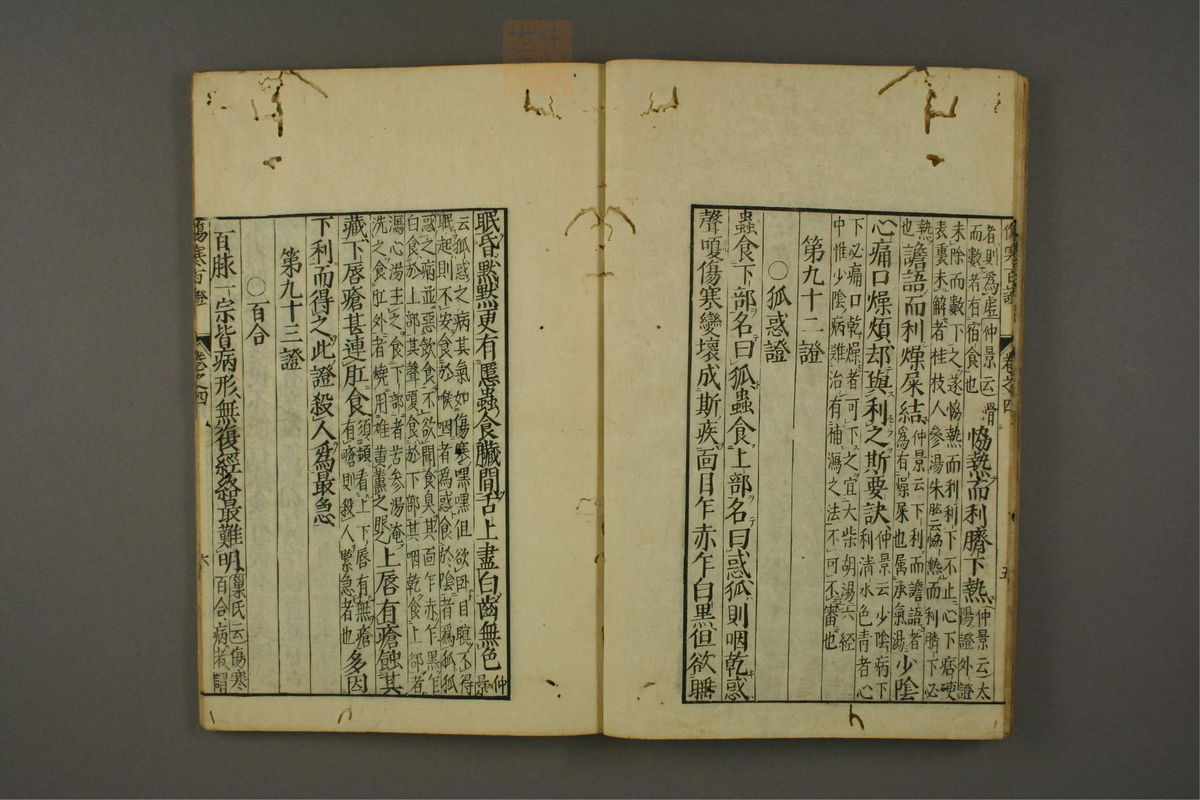 傷寒百證
卷之四
五
者則爲虛仲景云滑
而數者有宿食也
恊熱而利臍下熱
仲景云太
陽證外證
未除而數下之遂恊熱而利利下不止心下痞硬
表裏未解者桂枝人參湯朱肱云恊熱而利臍下必
熱
也
譫語而利燥屎結
仲景云下利而譫語者
爲有燥屎也属承氣湯
少陰
心痛口燥煩却與利之斯要訣
仲景云少陰病下
利清水色青者心
下必痛口乾燥者可下之宜大柴胡湯六經
中惟少陰病難治有補瀉之法不可不審也
第九十二證
〇狐惑證
蟲食下部名曰狐蟲食上部名曰惑狐則咽乾惑
聲嗄傷寒變壞成斯疾面目乍赤乍白黑但欲睡
眠昏黙黙更有𢙣蟲食臟間舌上盡白齒無色
仲景
云狐惑之病其氣如傷寒嘿嘿但欲卧目瞑不得
眠起則不安食於喉咽者爲惑食於陰者爲狐狐
惑之病並惡飲食不欲聞食臭其面乍赤乍黑乍
白食於上部其聲嗄食於下部其咽乾食上部者
瀉心湯主之食下部者苦参湯淹
洗之食肛外者燒用雄黄薰之
上唇有瘡蝕其
藏下唇瘡甚連肛食
須頻看上下唇有無瘡
有瘡則殺人緊急者也
多因
下利而得之此證殺人爲最急
第九十三證
〇百合
百脉一宗皆病形無復經絡最難明
巢氏云傷寒
百合病者謂
傷寒百證
卷之四
六